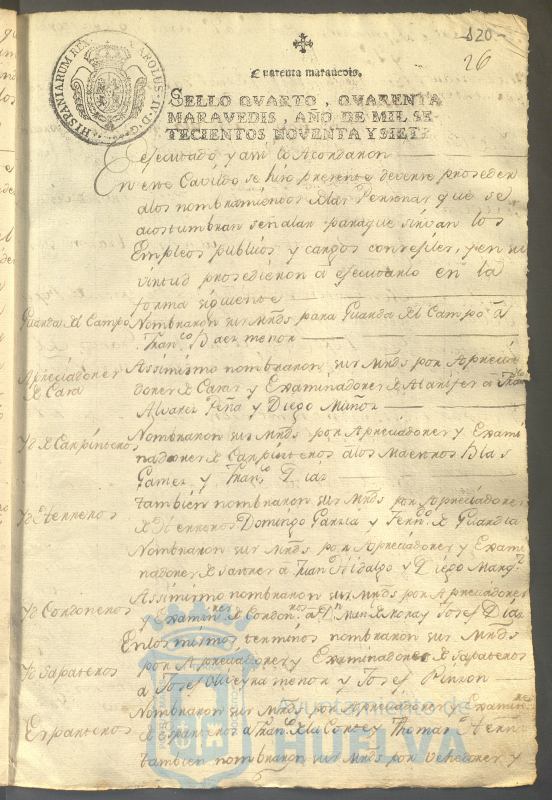 120
26
HISPANIARUM REX
CAROLUS IV D G
Quarenta marauedis.
SELLO QVARTO, QVARENTA
MARAVEDIS, AÑO DE MIL SE-
TECIENTOS NOVENTA Y SIETE
Executado y asi lo Acordaron
En este Cavildo se hizo presente deverse proseder
alos nombramientos de las Personas que se
acostumbran señalar para que sirvan los
Empleos publicos y cargos consejiles, y en su
virtud prosedieron a ejecutarlo en la
forma siguiente
Guarda del Campo Nombraron sus Mrds para Guarda del Campo a
Franco Baez menor
Apreciadores de Casa Assimismo nombraron sus Mrds por Aprecia
dores de Casas y Examinadores de Alarifes a
Alvarez Peña y Diego Muñoz
Yd de Carpinteros Nombraron sus Mrds por Apreciadores y Exami
nadores de Carpinteros alos Maestros Blas
Gamez y Franco Diaz
Yd Herreros tambien nombraron sus Mrds por Apreciadores
de Herreros Domingo Garcia y Ferndo de Guardia
Nombraron sus Mrds por Apreciadores y Exami
nadores de Sastres a Juan Hidalgo y Diego Marqz
Yd Cordoneros Assimismo nombraron sus Mrds por Apreciadores
y Examinres de Cordonros a Dn Man de Mora y Josef Diaz
Yd Sapateros En los mismos terminos nombraron sus Mrds
por Apreciadores y Examinadores de Sapateros
a Josef menor y Josef Pinzon
Esparteros Nombraron sus Mrds por Apreciadores y Examinres
de Esparteros a Fran de la Corte y Thomas
tambien nombraron sus Mrds por Vehedores y
Ayuntamiento de
HUELVA